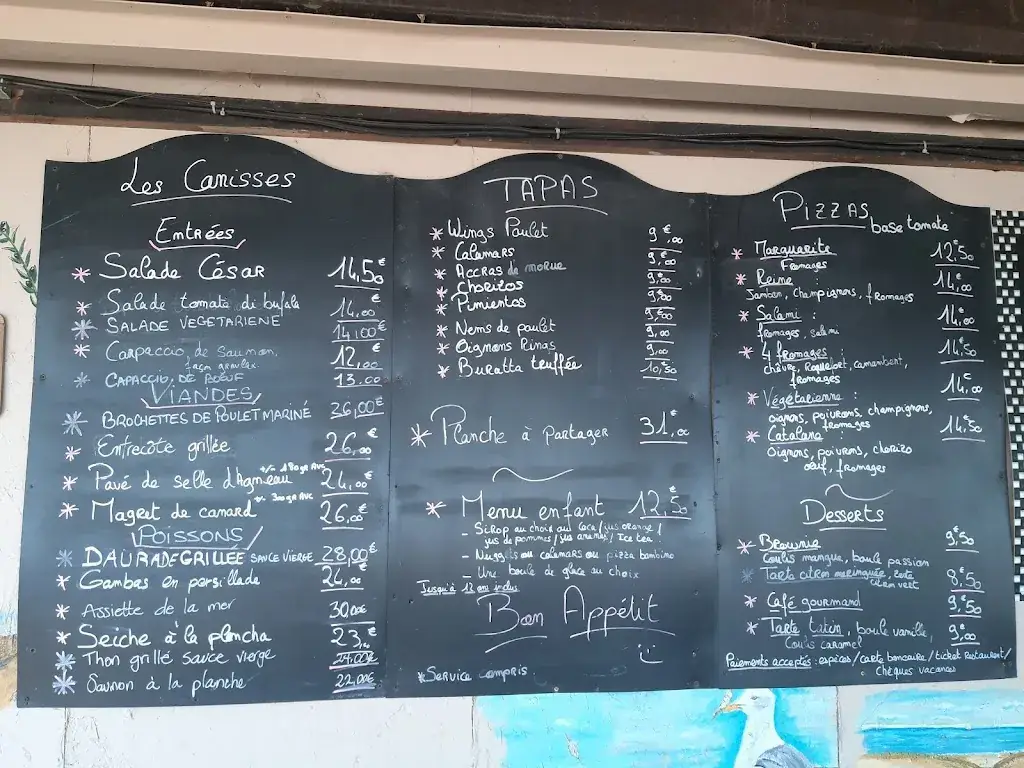 Les Canisses
Entrées
* Salade César 14,50€
* Salade tomate di bufala 14,00€
* SALADE VEGETARIENE 14,00€
* Carpaccio de Saumon 12,00€
façon gravlax
* CAPACCIO DE BOEUF 13,00
VIANDES
* BROCHETTES DE POULET MARINÉ 26,00€
* Entrecôte grillée 26,00€
+/- 180gr AVC
* Pavé de selle d'Agneau 24,00€
+/- 300gr AVC
* Magret de canard 26,00€
POISSONS
* DAURADE GRILLÉE SANCE VIERGE 28,00€
* Gambas en persillade 24,00
* Assiette de la mer 30,00€
* Seiche à la plancha 23,00€
* Thon grillé sauce vierge 24,00€
* Saumon à la planche 22,00€
TAPAS
* Wings Poulet 9€,00
* Calamars 9€,00
* Accras de morue 9€,00
* Chorizos 9€,00
* Pimientos 9€,00
* Nems de poulet 9,00
* Oignons Rings 9,00
* Buratta truffée 10,50
* Planche à partager 31€,00
* Menu enfant 12€,50
- Sirop au choix ou Coca / jus orange /
jus de pommes / jus ananas / Ice tea
- Nuggets ou calamars ou pizza bambino
- Une boule de glace au choix
Jusqu'à 12 ans inclus
Bon Appétit
*Service compris
PIZZAS base tomate
* Marguarite 12€,50
Fromages
* Reine 14€,00
Jambon, champignons, fromages
* Salami : 14€,00
fromages, salami
* 4 fromages : 14€,50
chèvre, Roquefort, camembert,
fromages
* Végétarienne : 14€,00
oignons, poivrons, champignons,
fromages
* Catalane : 14€,50
oignons, poivrons, chorizo
oeuf, fromages
Desserts
* Brownie 9€,50
Coulis mangue, boule passion
* Tarte citron meringuée, zeste 8€,50
citron vert
* Café gourmand 9€,50
* Tarte tatin, boule vanille, 9€,00
Coulis caramel
Paiements acceptés : espèces / carte bancaire / ticket restaurant /
chèques vacances